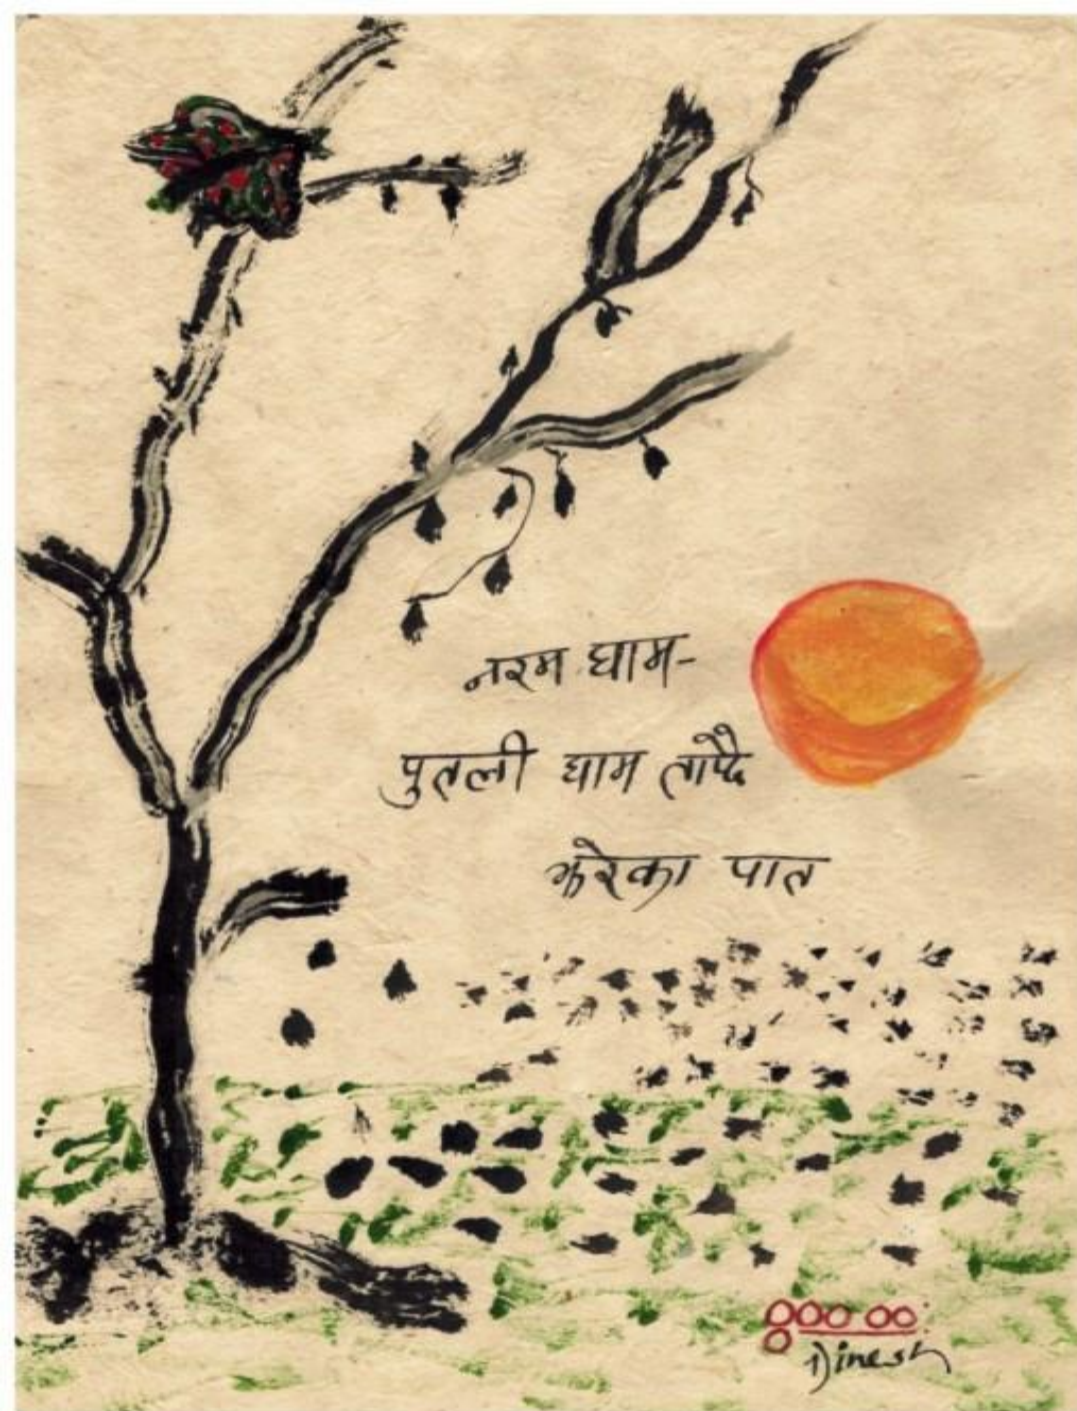 नरम घाम-
पुतली घाम ताप्दै
झरेका पात
Dinesh